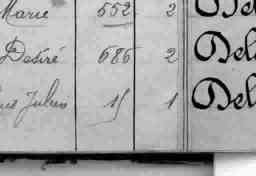 Marie 552 2 Del
Desiré 686 2 Del
Jules 15 1 Del